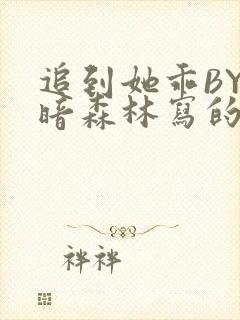 追到她乖BY
暗森林寫的
袢袢